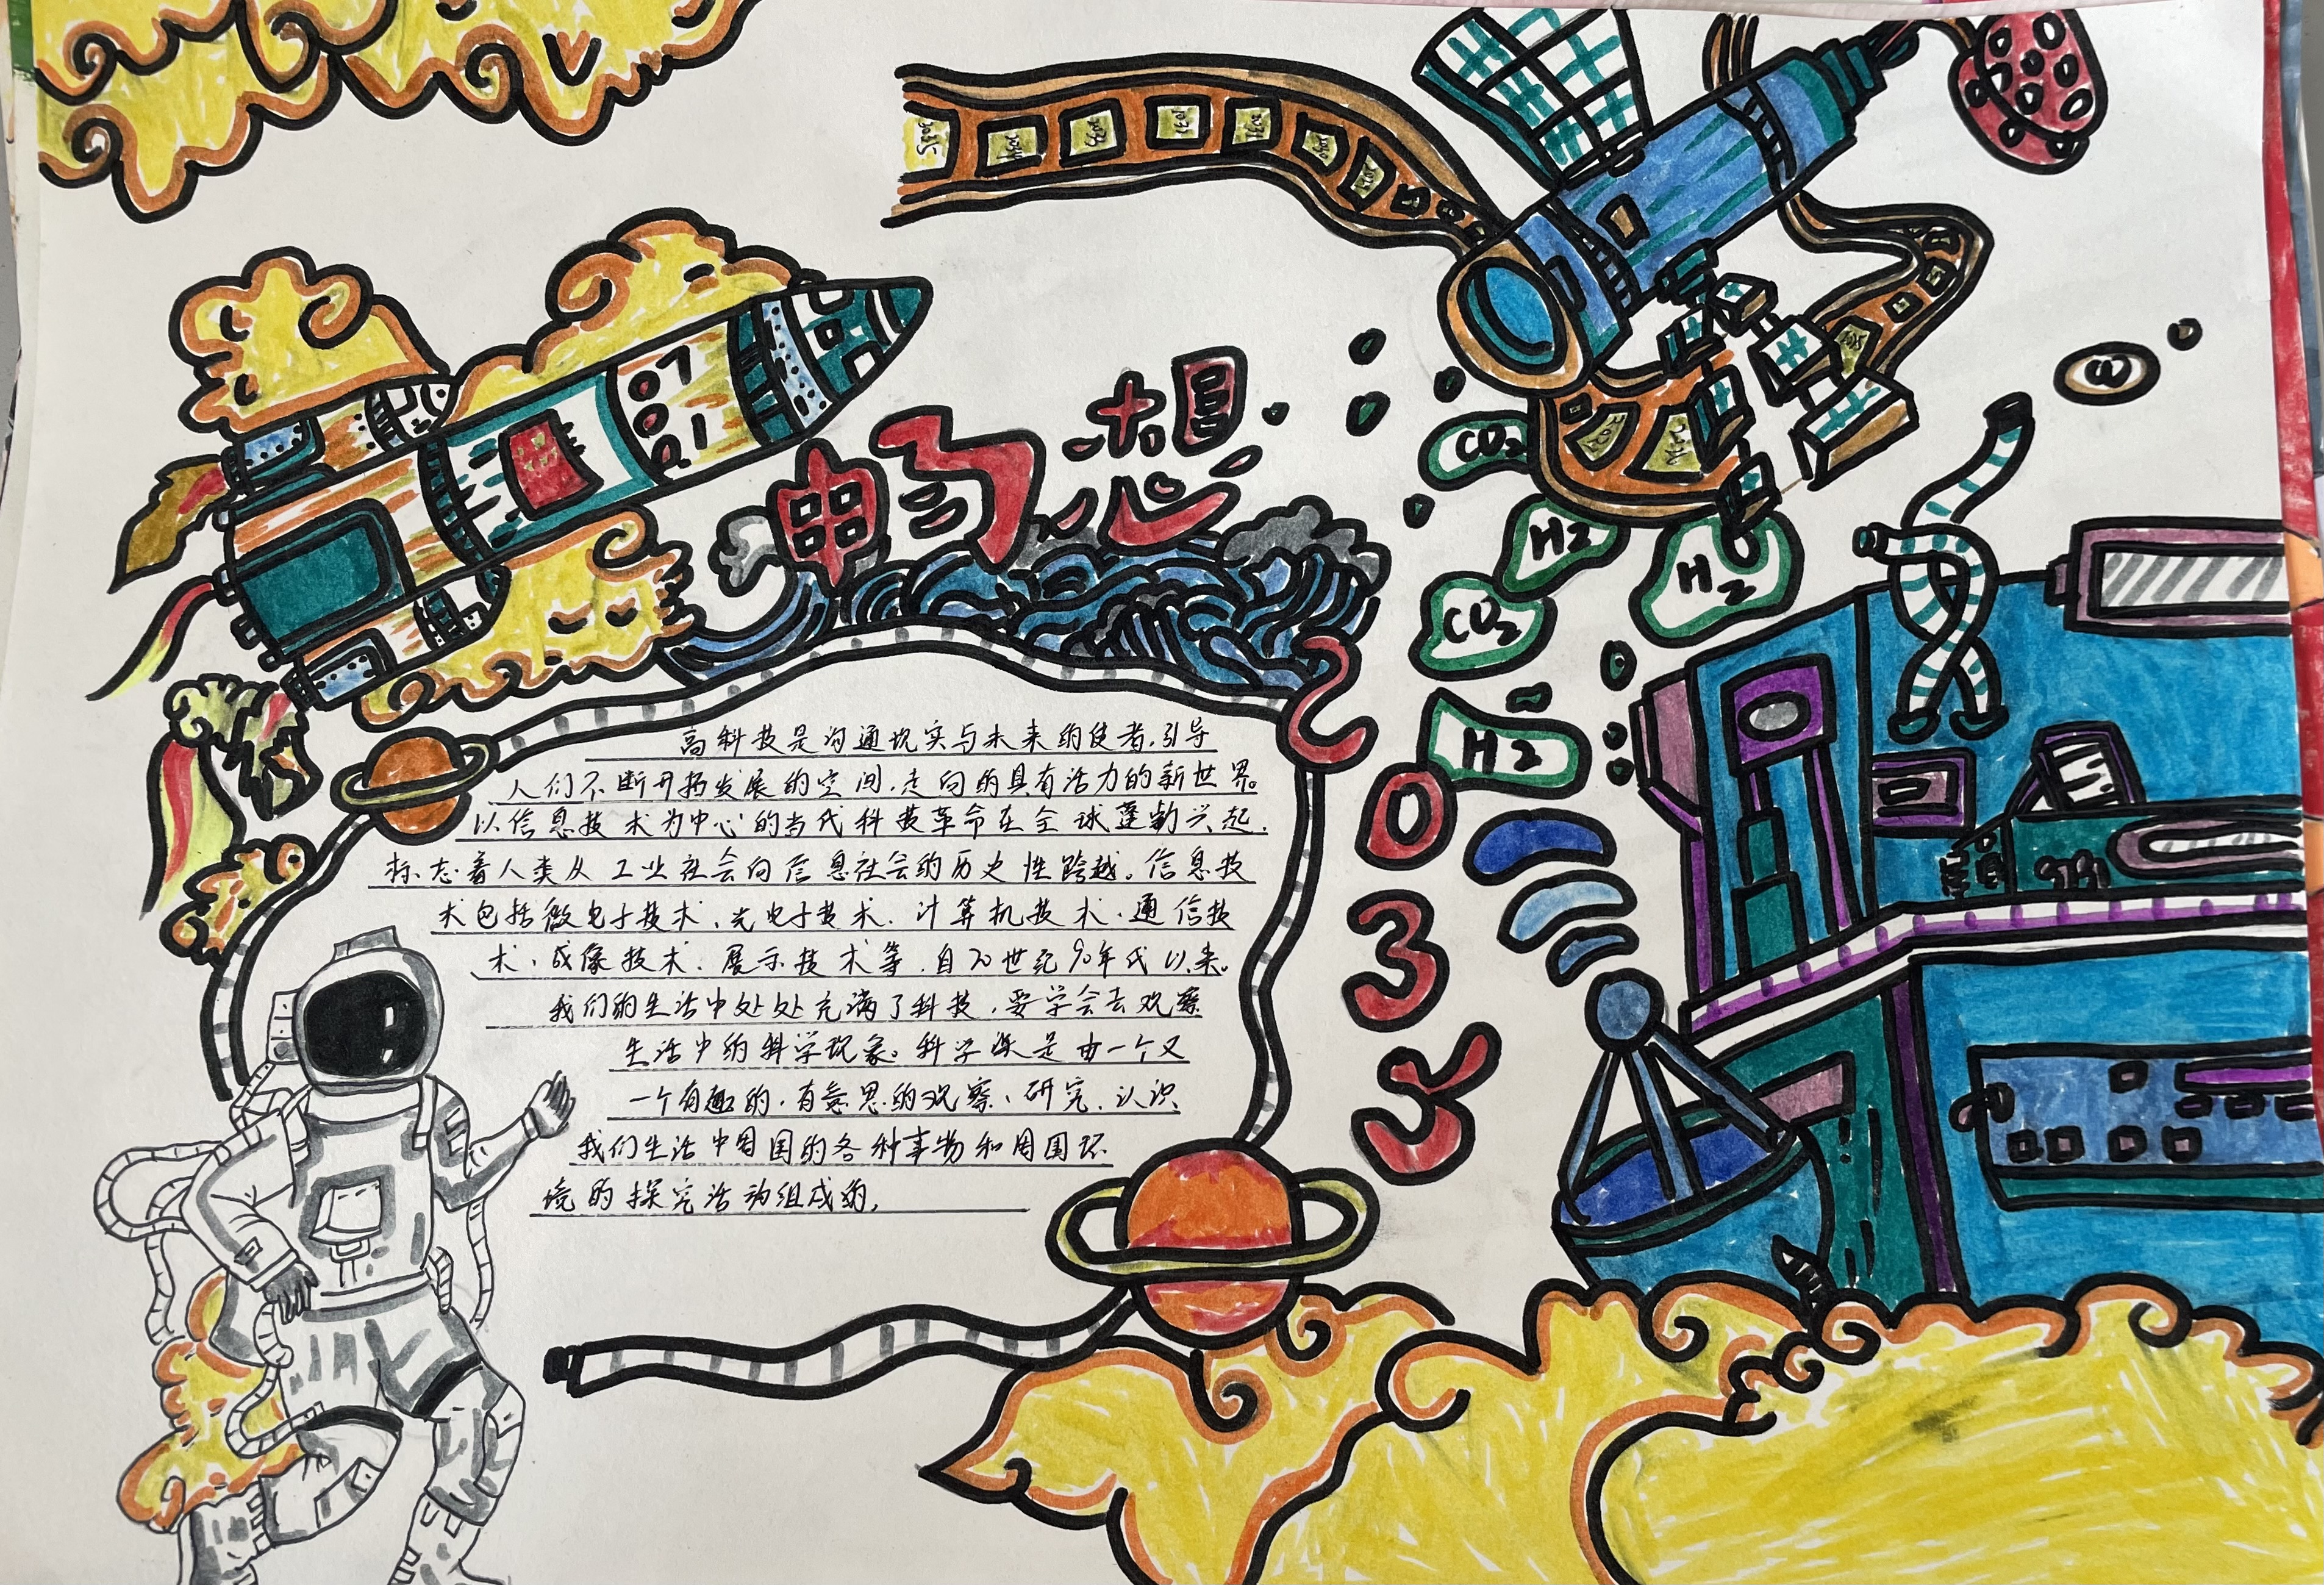 畅想
2035
高科技是沟通现实与未来的使者,引导
人们不断开拓发展的空间,走向的具有活力的新世界。
以信息技术为中心的当代科技革命在全球蓬勃兴起.
标志着人类从工业社会向信息社会的历史性跨越。信息技
术包括微电子技术、光电子技术、计算机技术、通信技
术、成像技术、展示技术等,自20世纪90年代以来。
我们的生活中处处充满了科技,要学会去观察
生活中的科学现象。科学课是由一个又
一个有趣的,有意思的观察、研究、认识
我们生活中周围的各种事物和周围环
境的探究活动组成的,
CO2
H2
H2
CO2
H2